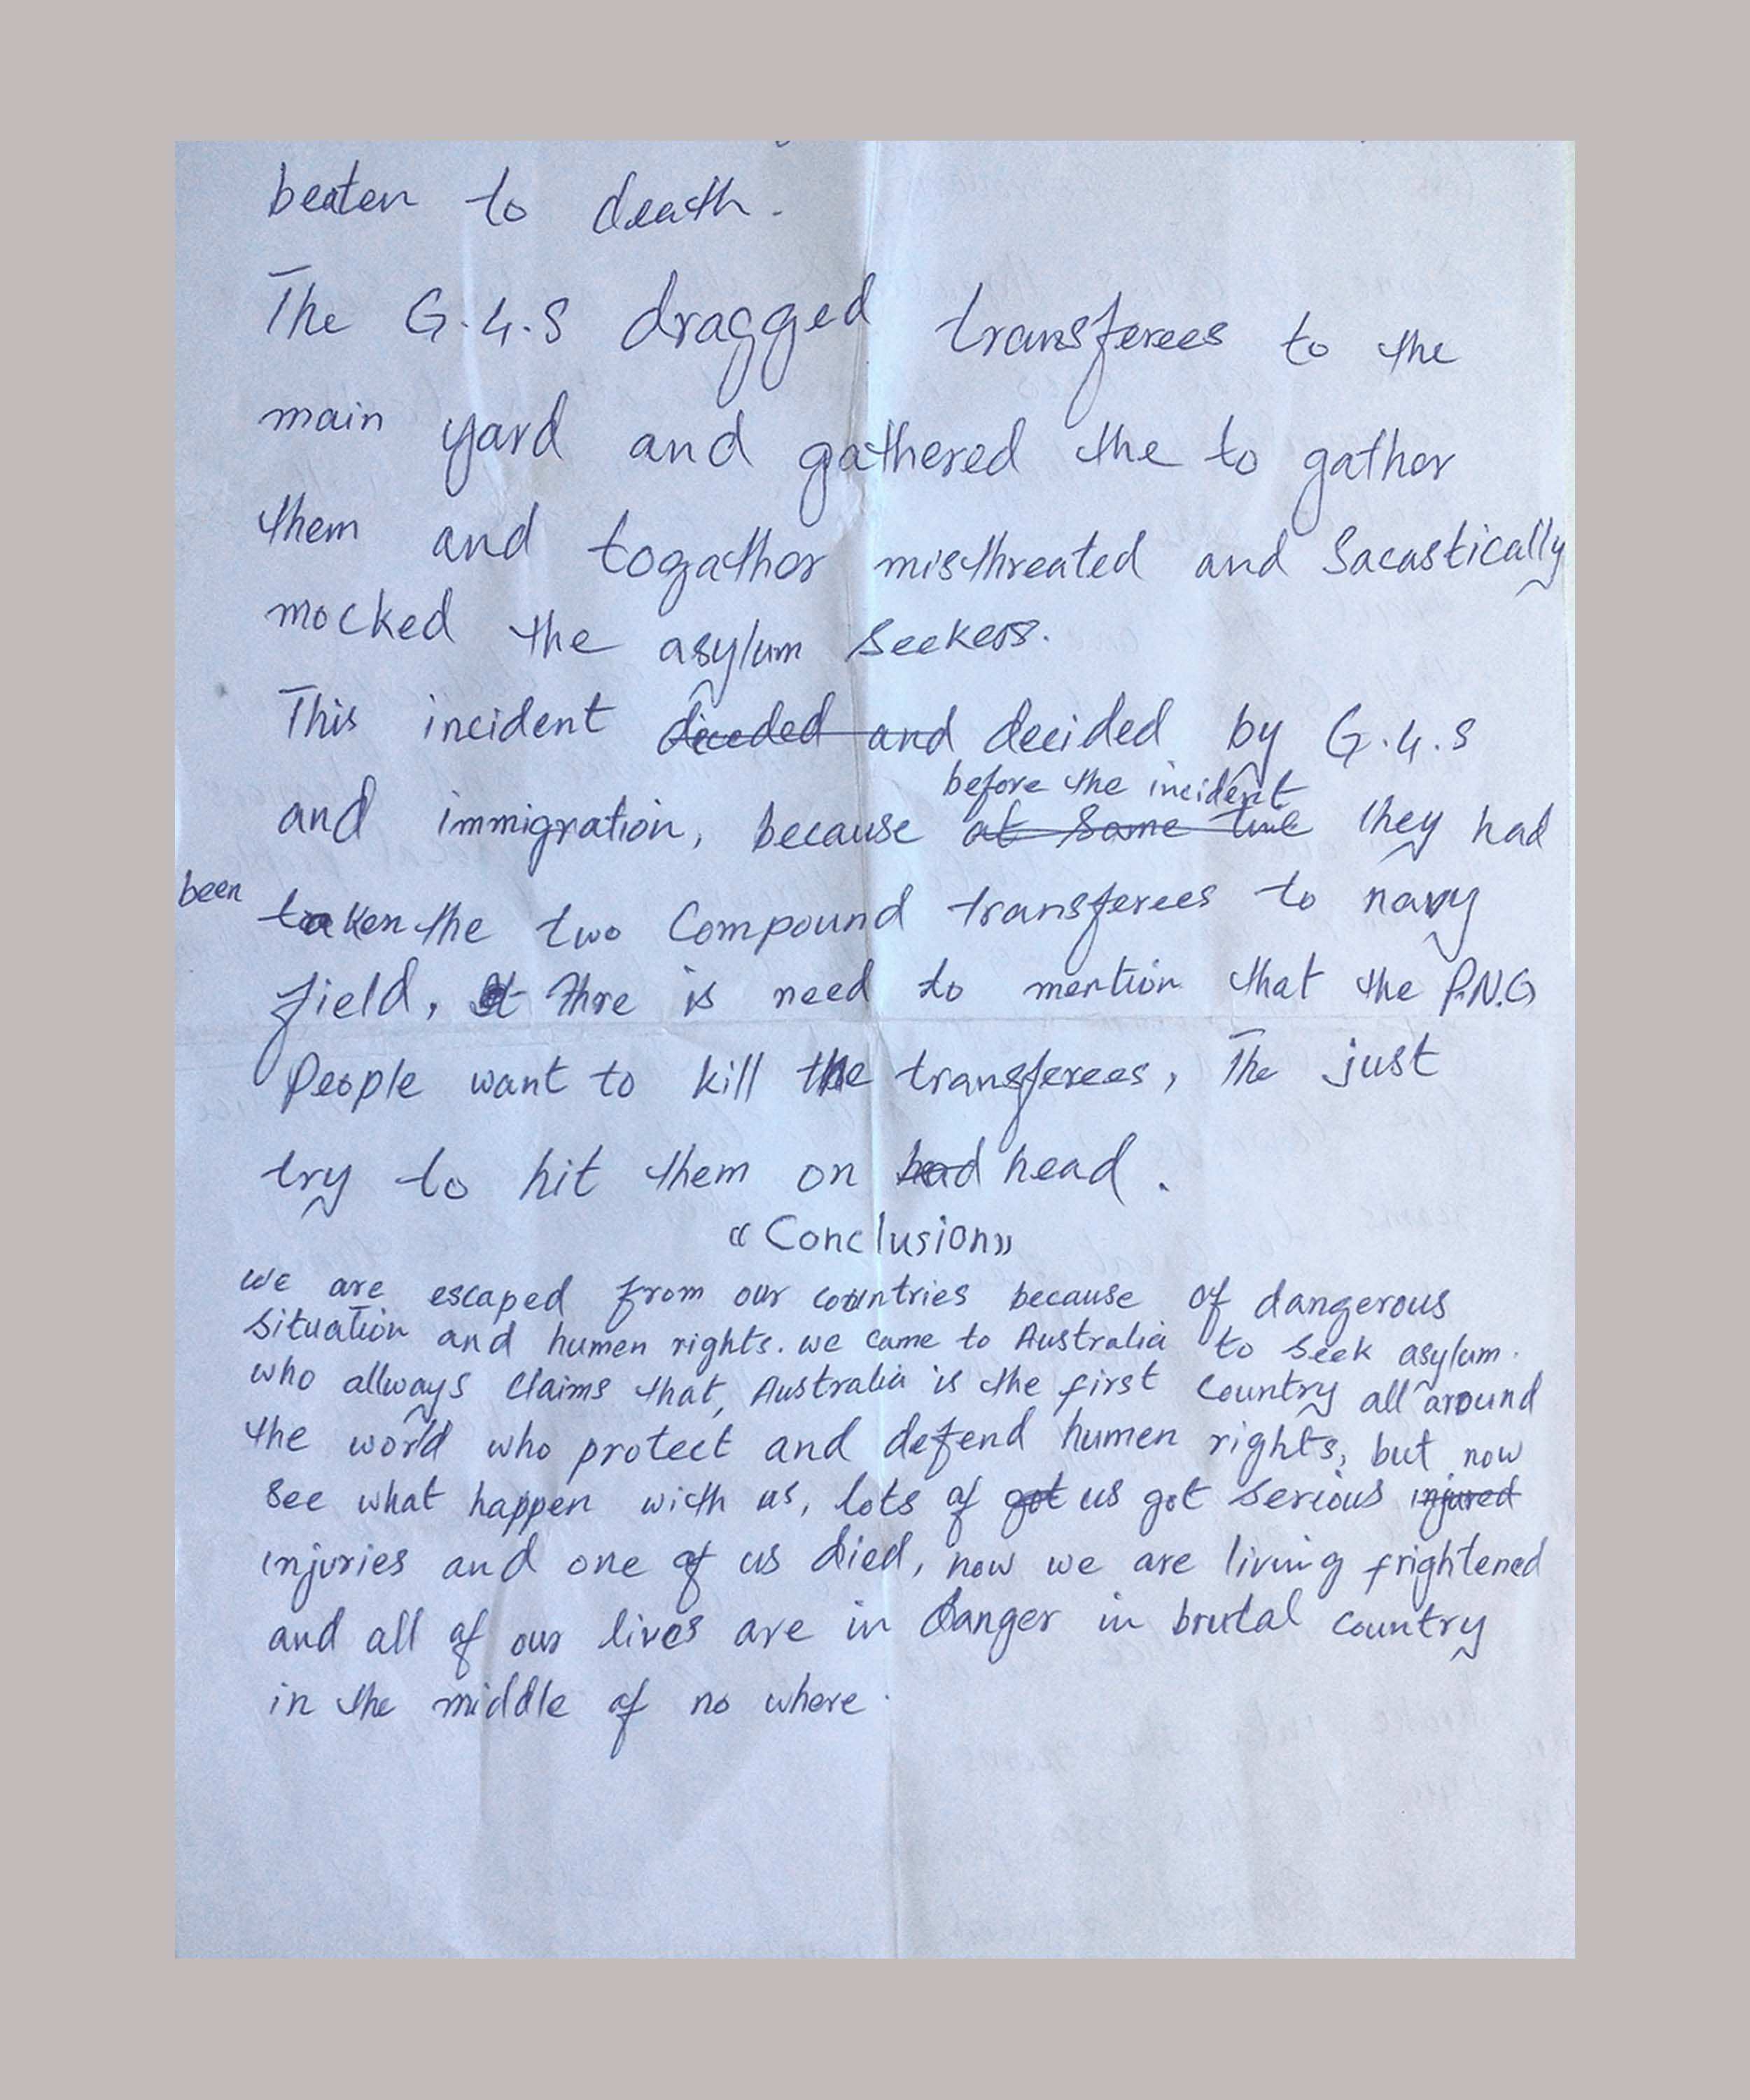 beaten to death.
The G.4.S dragged transferees to the
main yard and gathered the to gather
them and togather misthreated and Sacastically
mocked the asylum seekers.
This incident diceded and decided by G.4.S
before the incident
and immigration, because at same time they had
been taken the two Compound transferees to navy
field, thre is need to mention that the P.N.G
People want to kill the transferees, The just
try to hit them on head head.
«Conclusion»
we are escaped from our countries because of dangerous
situation and humen rights. we came to Australia to seek asylum.
who allways claims that, Australia is the first country all around
the world who protect and defend humen rights, but now
see what happen with us, lots of got us got serious injured
injuries and one of us died, now we are living frightened
and all of our lives are in danger in brutal country
in the middle of no where.